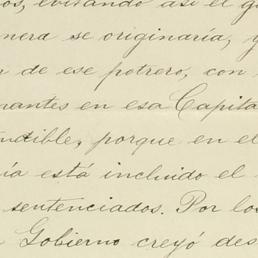 os, evitando así el g
nera se originaría, y
de ese potrero, con
nantes en esa Capita
ndible, porque en el
ía está incluido el
sentenciados. Por los
Gobierno creyó des